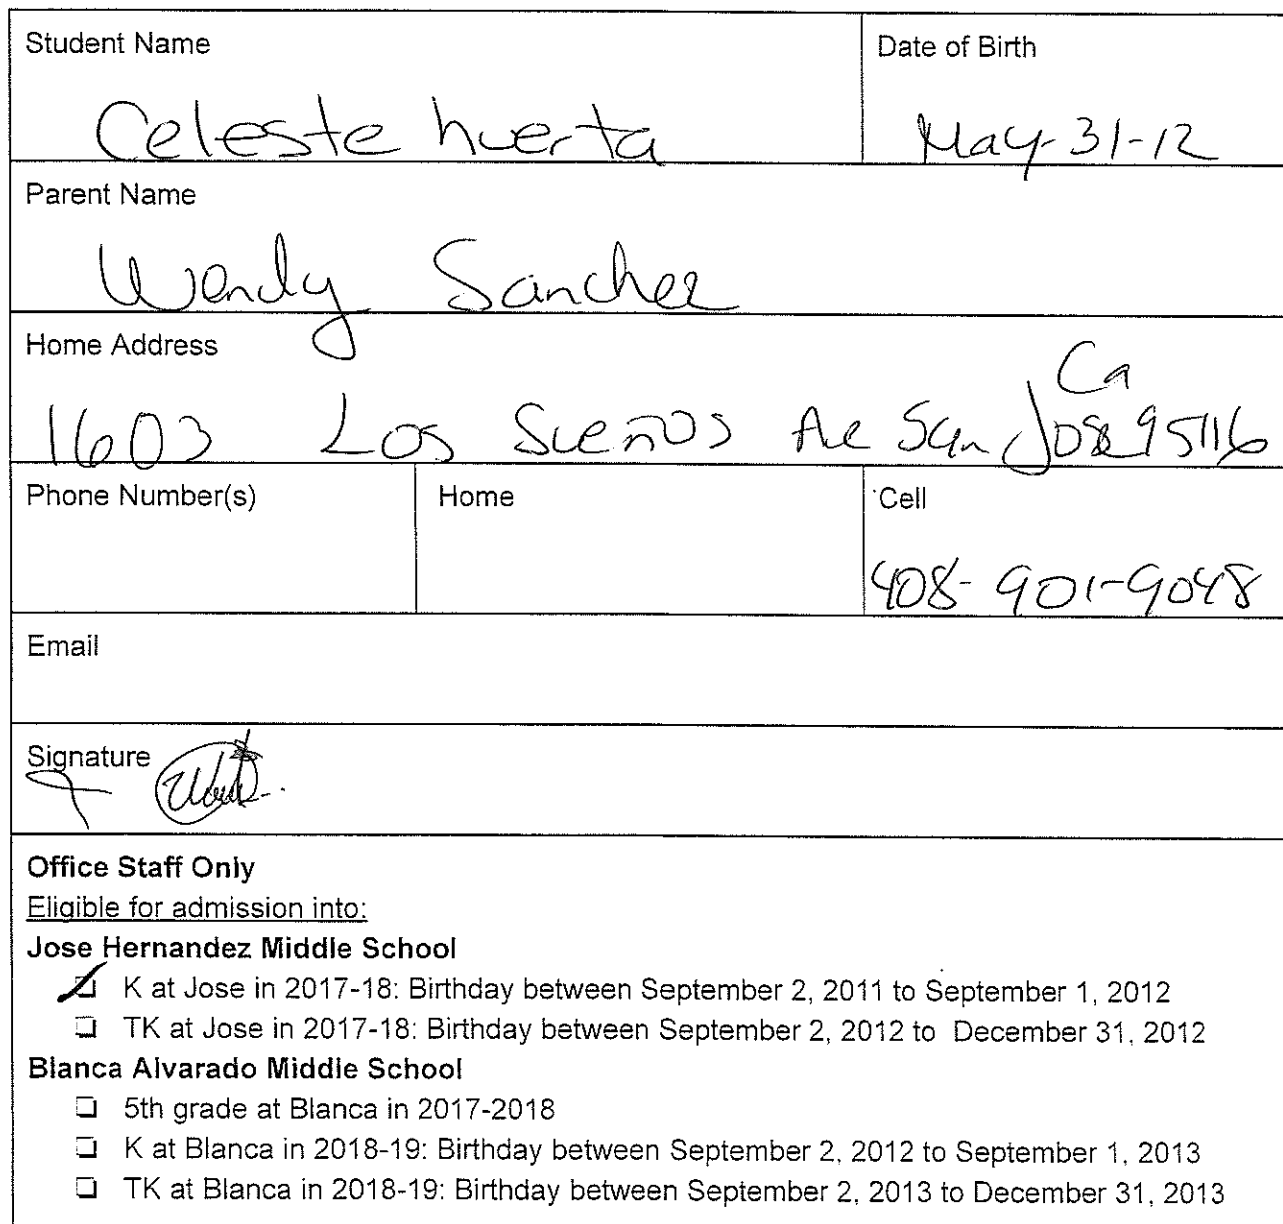 Student Name
Date of Birth
Celeste huerta
May-31-12
Parent Name
Wendy Sanchez
Home Address
Ca
1603 Los Sueños Ave San Jose 95116
Phone Number(s)
Home
Cell
408-901-9048
Email
Signature
Office Staff Only
Eligible for admission into:
Jose Hernandez Middle School
K at Jose in 2017-18: Birthday between September 2, 2011 to September 1, 2012
TK at Jose in 2017-18: Birthday between September 2, 2012 to December 31, 2012
Blanca Alvarado Middle School
5th grade at Blanca in 2017-2018
K at Blanca in 2018-19: Birthday between September 2, 2012 to September 1, 2013
TK at Blanca in 2018-19: Birthday between September 2, 2013 to December 31, 2013